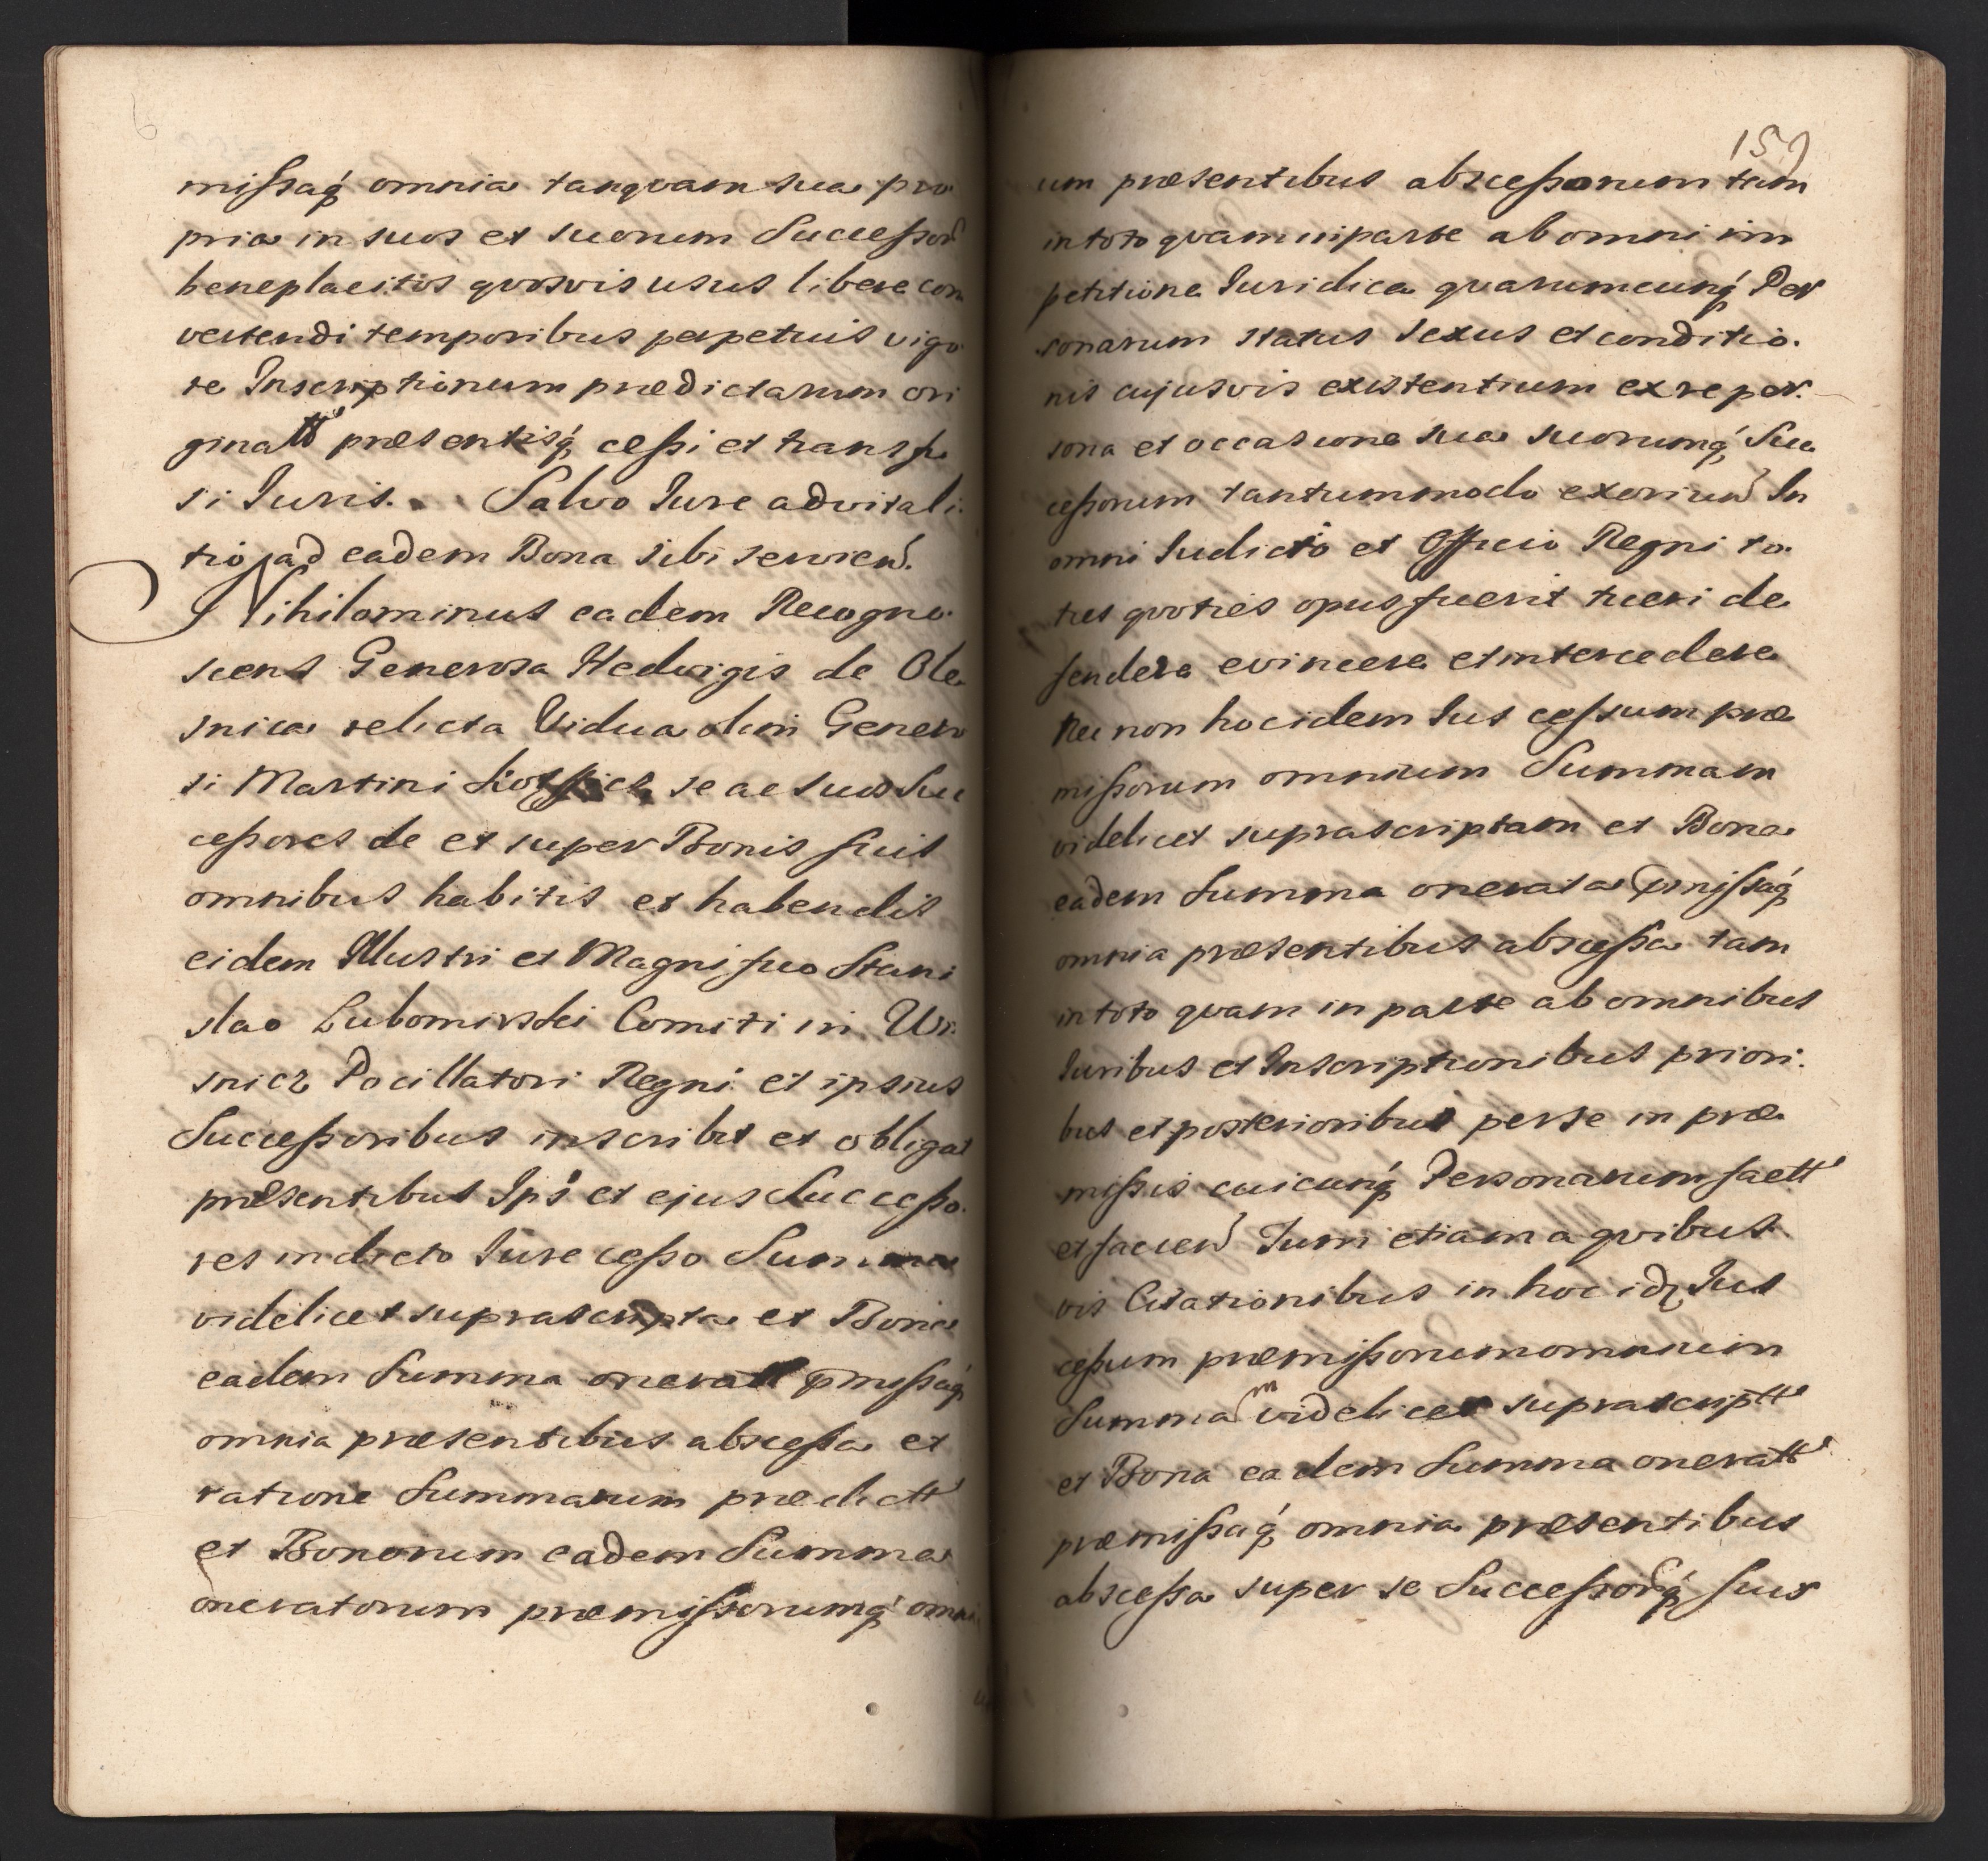 6
missaq́ omnia tanqvam sua pro
pria in suos et suorum Successor
beneplacitos qvosvis usus libere con
vertendi temporibus perpetuis vigo
re Inscriptionum prædictarum ori
ginatt præsentisq́ cessi et transfu
si Iuris. Salvo Iure advitali
tio ad eadem Bona sibi servien.
Nihilominus eadem Recogno
scens Generosa Hedwigis de Ole
snica relicta Vidua olim Genero
si Martini se ac suos Suc
cessores de et super Bonis suis
omnibus habitis et habendis
eidem Illustri et Magnifico Stani
slao Lubomirski Comiti in Wi
snicz Pocillatori Regni et ipsius
Successoribus inscribit et obligat
præsentibus Ips et ejus Successo
res in dicto Iure cesso Summa
videlicet suprascripta et Bona
eadem Summa oneratt pmissaq́
omnia præsentibus abscessa et
ratione Summarum prædictt
et Bonorum eadem Summa
oneratorum præmissorumq́ omni
159
um præsentibus abscessorum tam
in toto qvam in parte ab omni im
petitione Iuridica qvarumcunq́ Per
sonarum status sexus et conditio.
nis cujusvis existentium ex re per.
sona et occasione sua suorumq́ Suc
cessorum tantummodo exorien In
omni Iudicio et Officio Regni to.
ties qvoties opus fuerit tueri de
fendere evincere et intercedere
Nec non hoc idem Ius cessum præ
missorum omnium Summam
videlicet suprascriptam et Bona
eadem Summa onerata pmissaq́
omnia præsentibus abscessa tam
in toto qvam in parte ab omnibus
Iuribus et Inscriptionibus priori.
bus et posterioribus per se in præ
missis cuicunq́ Personarum factt
et facien Tum etiam a qvibus
vis Citationibus in hoc id Ius
cessum præmissorum omnium
Summam videlicet suprascriptt
et Bona eadem Summa oneratt
præmissaq́ omnia præsentibus
abscessa super se Successorq́ suos